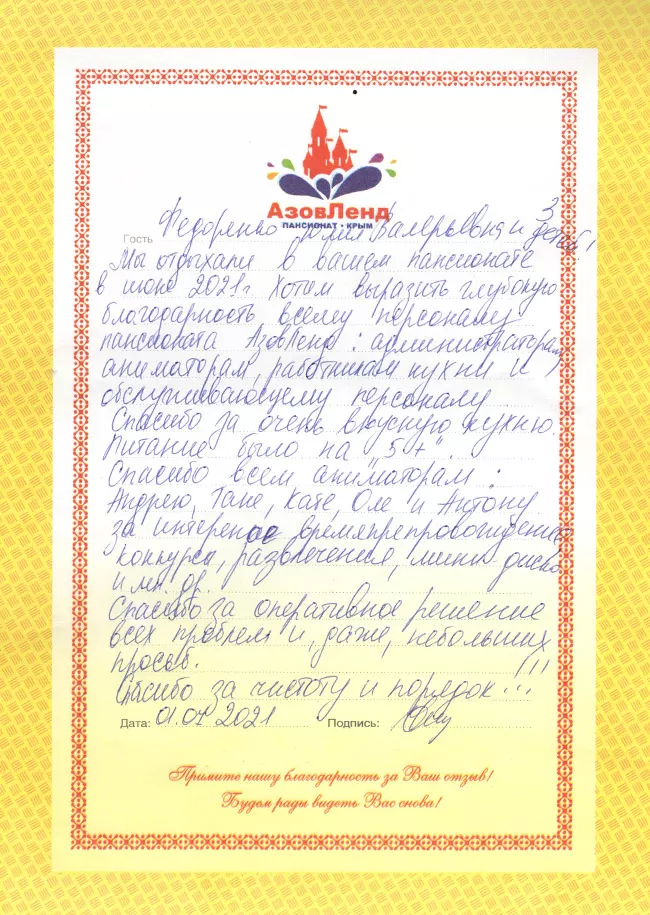 АзовЛенд
ПАНСИОНАТ • КРЫМ
Гость Федоренко Юлия Валерьевна и 3 детей!
Мы отдыхали в вашем пансионате
в июне 2021г. Хотим выразить глубокую
благодарность всему персоналу
пансионата АзовЛенд: администраторам,
аниматорам, работникам кухни и
обслуживающему персоналу.
Спасибо за очень вкусную кухню.
Питание было на "5+".
Спасибо всем аниматорам:
Андрею, Тане, Кате, Оле и Антону
за интересное времяпрепровождение
конкурсы, развлечения, мини диско
и мн. др.
Спасибо за оперативное решение
всех проблем и, даже, небольших
просьб.
Спасибо за чистоту и порядок!!!
Дата: 01.07.2021 Подпись:
Примите нашу благодарность за Ваш отзыв!
Будем рады видеть Вас снова!